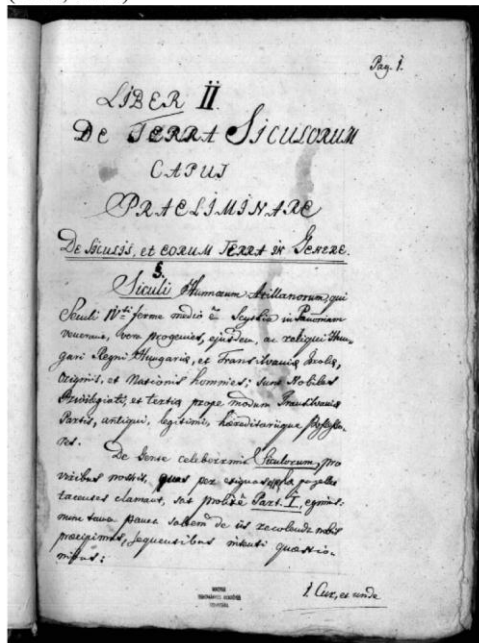 Pag. 1.
LIBER II.
De TERRA SICULORUM
CAPUT
PRAELIMINARE
De Siculis, et eorum TERRA in Genere.
§.
Siculi Hunnorum Atillanorum, qui
Seculi IV ti ferme medio e Scythia in Panoniam
venerunt, vera progenies, ejusdem, ac reliqui Hun-
gari Regni Hungariae, et Transilvaniae Incolae,
Originis, et Nationis homines; sunt Nobiles
Privilegiati, et tertiae prope modum Transilvaniae
Partis, antiqui, legitimi, haereditariique Possesso-
res.
De Gente celeberrima Siculorum, pro
viribus nostris, quas per
tacentes clamant, sat Part. I,
nunc tamen pauca de iis recolenda nobis
praecipimus, sequentibus intenti quaestio-
nibus:
1. Cur, et unde